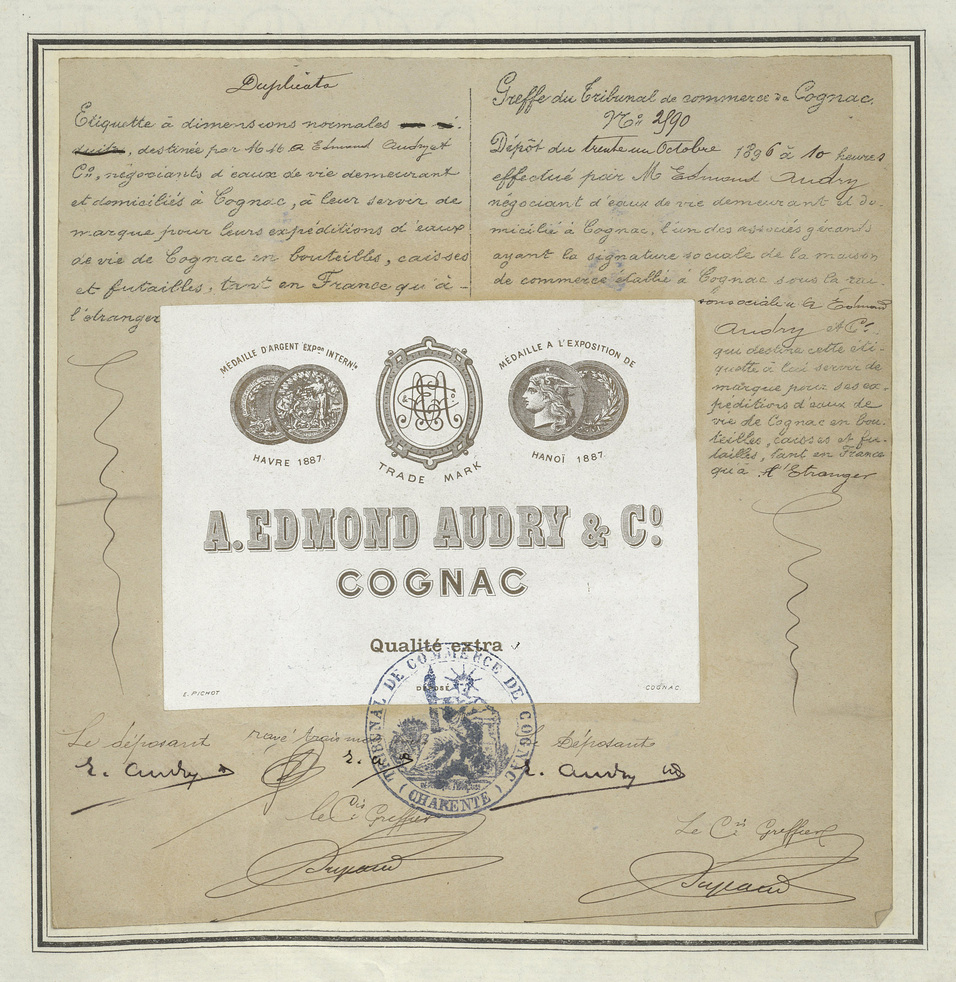 Duplicata
Etiquette à dimensions normales
destinée par MM A Edmond Audry et
Cie, négociants d'eaux de vie demeurant
et domiciliés à Cognac, à leur servir de
marque pour leurs expéditions d'eaux
de vie de Cognac en bouteilles, caisses
et futailles, tant en France qu'à
l'étranger
Greffe du Tribunal de commerce de Cognac.
No 2990
Dépôt du trente un Octobre 1896 à 10 heures
effectué par M Edmond Audry
négociant d'eaux de vie demeurant et do-
micilié à Cognac, l'un des associés gérants
ayant la signature sociale de la maison
de commerce établie à Cognac sous la rai-
son sociale A Edmond
Audry et Cie.
qui destine cette éti-
quette à lui servir de
marque pour ses ex-
péditions d'eaux de
vie de Cognac en bou-
teilles, caisses et fu-
tailles, tant en France
qu'à l'Etranger
MÉDAILLE D'ARGENT EXPon INTERNle
HAVRE 1887
TRADE MARK
MÉDAILLE A L'EXPOSITION DE
HANOÏ 1887
A. EDMOND AUDRY & Co.
COGNAC
Qualité extra
DÉPOSÉ
E. PICHOT
COGNAC
TRIBUNAL DE COMMERCE DE COGNAC
(CHARENTE)
Le déposant
rayé trois mots
Déposant
E. Audry
E. Audry
le Cis Greffier
Le Cis Greffier